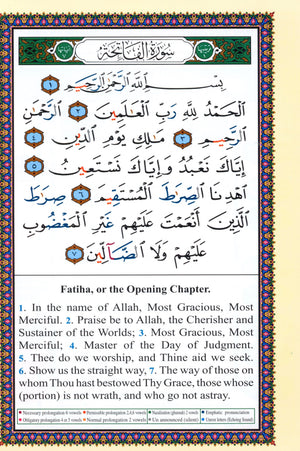 سُورَةُ الْفَاتِحَةِ
بِسْمِ ٱللَّهِ ٱلرَّحْمَٰنِ ٱلرَّحِيمِ ١
ٱلْحَمْدُ لِلَّهِ رَبِّ ٱلْعَٰلَمِينَ ٢ ٱلرَّحْمَٰنِ
ٱلرَّحِيمِ ٣ مَٰلِكِ يَوْمِ ٱلدِّينِ ٤
إِيَّاكَ نَعْبُدُ وَإِيَّاكَ نَسْتَعِينُ ٥
ٱهْدِنَا ٱلصِّرَٰطَ ٱلْمُسْتَقِيمَ ٦ صِرَٰطَ
ٱلَّذِينَ أَنْعَمْتَ عَلَيْهِمْ غَيْرِ ٱلْمَغْضُوبِ
عَلَيْهِمْ وَلَا ٱلضَّآلِّينَ ٧
Fatiha, or the Opening Chapter.
1. In the name of Allah, Most Gracious, Most
Merciful. 2. Praise be to Allah, the Cherisher and
Sustainer of the Worlds; 3. Most Gracious, Most
Merciful; 4. Master of the Day of Judgment.
5. Thee do we worship, and Thine aid we seek.
6. Show us the straight way, 7. The way of those on
whom Thou hast bestowed Thy Grace, those whose
(portion) is not wrath, and who go not astray.
Necessary prolongation 6 vowels Permissible prolongation 2,4,6 vowels Nazalization (ghunnah) 2 vowels Emphatic pronunciation
Obligatory prolongation 4 or 5 vowels Normal prolongation 2 vowels Un announced (silent)